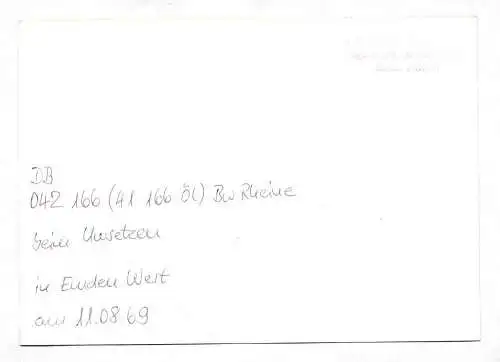 DB
042 166 (41 166 Öl) Bw Rheine
beim Umsetzen
in Emden West
am 11.08 69